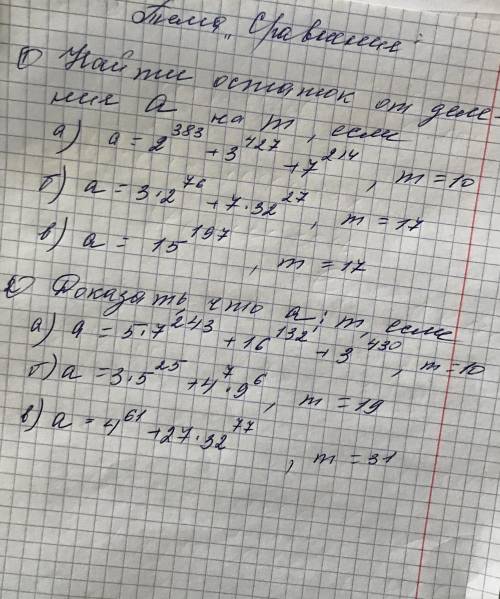 Тема „Сравнения“:
1) Найти остаток от деле-
ния a на m, если
а) a = 2^383 + 3^427 + 7^214, m = 10
б) a = 3·2^76 + 7·32^27, m = 17
в) a = 15^197, m = 17
2) Доказать, что a ⋮ m, если
а) a = 5·7^243 + 16^132 + 3^430, m = 10
б) a = 3·5^25 + 4^7·9^6, m = 19
в) a = 4^61 + 27·32^77, m = 31